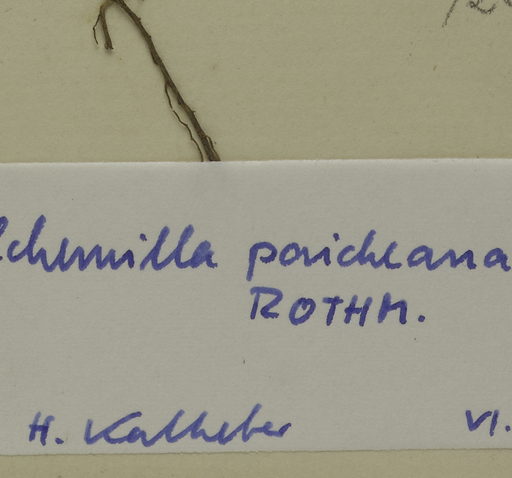 lchemilla poricheana
ROTHM.
H. Kalheber VI.